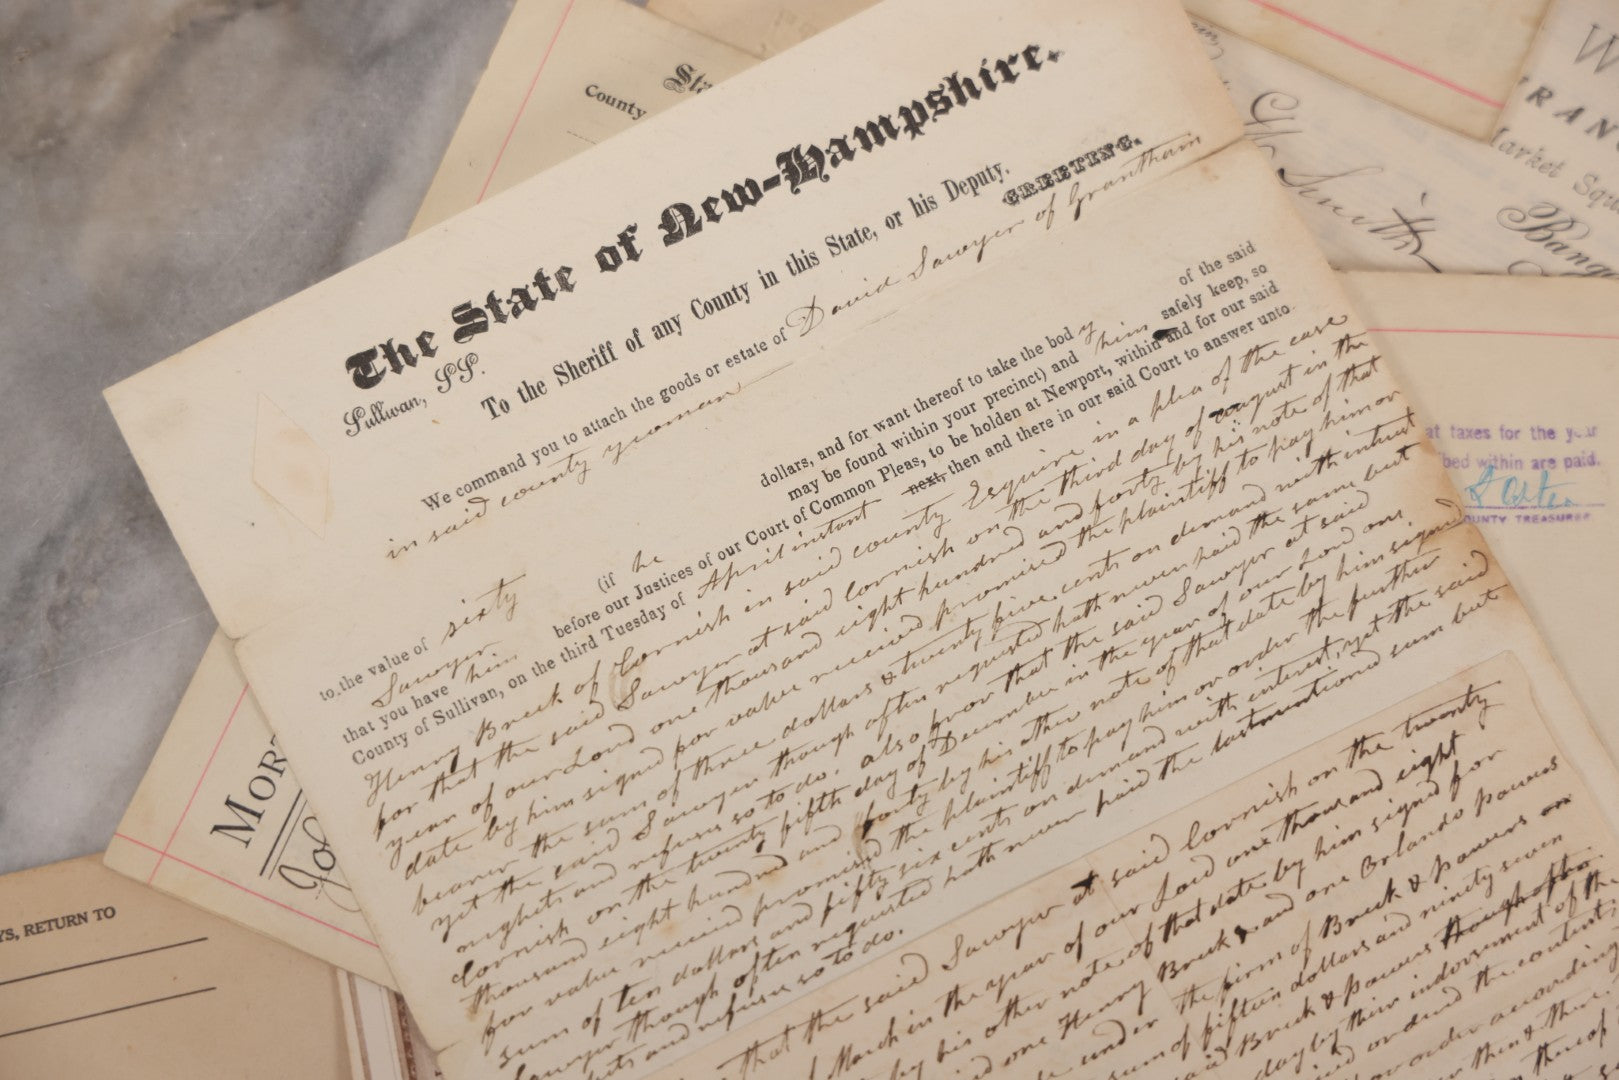 The State of New-Hampshire.
Sullivan, SS.
To the Sheriff of any County in this State, or his Deputy.
GREETING.
We command you to attach the goods or estate of David Sawyer of Grantham
in said county yeoman
to the value of sixty dollars, and for want thereof to take the body of the said
Sawyer (if he may be found within your precinct) and him safely keep, so
that you have him before our Justices of our Court of Common Pleas, to be holden at Newport, within and for our said
County of Sullivan, on the third Tuesday of April instant next, then and there in our said Court to answer unto
Henry Breck of Cornish in said county Esquire in a plea of the case
for that the said Sawyer at said Cornish on the third day of august in the
year of our Lord one thousand eight hundred and forty by his note of that
date by him signed for value received promised the plaintiff to pay him or
bearer the sum of three dollars & twenty five cents on demand with interest
yet the said Sawyer though often requested hath never paid the same but
neglects and refuses so to do. also for that the said Sawyer at said
Cornish on the twenty fifth day of December in the year of our Lord one
thousand eight hundred and forty by his other note of that date by him signed
for value received promised the plaintiff to pay him or order the further
sum of ten dollars and fifty six cents on demand with interest, yet the said
Sawyer though often requested hath never paid the lastmentioned sum but
and refuses so to do.
that the said Sawyer at said Cornish on the twenty
March in the year of our Lord one thousand eight
by his other note of that date by him signed for
one Henry Breck and one Orlando Powers
under the firm of Breck & Powers
sum of fifteen dollars and ninety seven
said Breck & Powers though often
day by their indorsement of the
ordered the
or order according
County
MOR
RETURN TO
Market Squ
Bang
at taxes for the year
bed within are paid.
COUNTY TREASURER